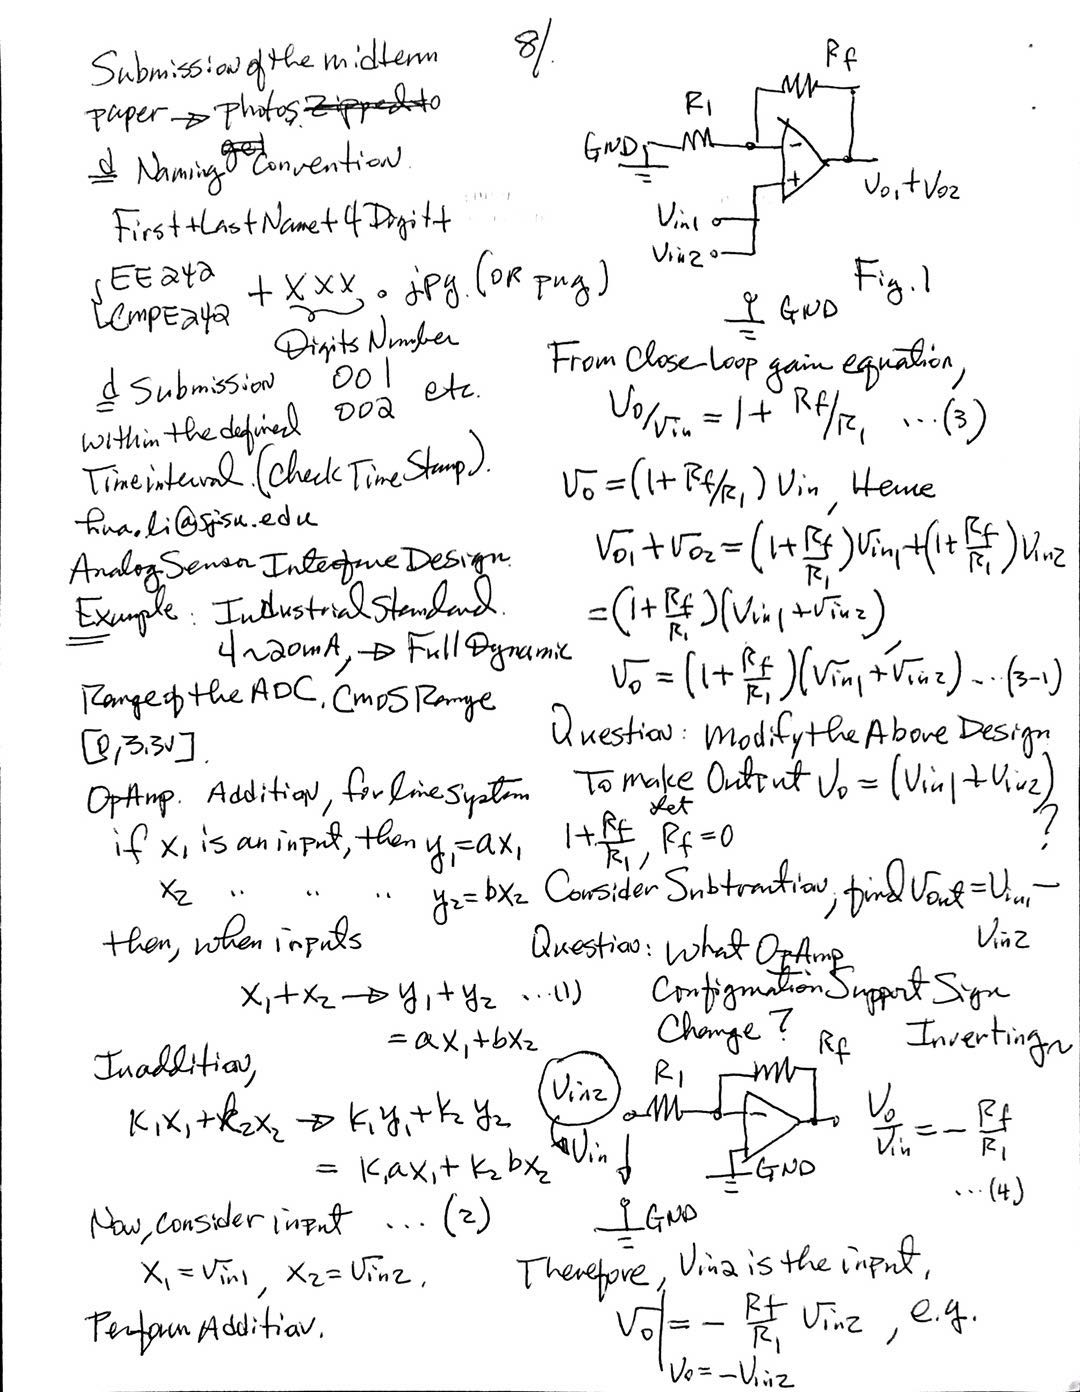 8/.
Submission of the midterm
paper → photos. Zipped to
get
d Naming Convention.
First+Last Name+4 Digit+
{EE242
CmpE242 + XXX . jpg. (OR png)
Digits Number
d Submission 001 etc.
within the defined 002
Time interval. (Check Time Stamp).
hua.li@sjsu.edu
Analog Sensor Interface Design.
Example: Industrial Standard.
4~20mA, → Full Dynamic
Range of the ADC. CMOS Range
[0, 3.3V].
OpAmp. Addition, for line system
if x₁ is an input, then y₁=ax₁
x₂ " " " y₂=bx₂
then, when inputs
x₁+x₂ → y₁+y₂ ...(1)
= ax₁+bx₂
In addition,
K₁x₁+k₂x₂ → K₁y₁+K₂y₂
= K₁ax₁+K₂bx₂
Now, consider input ... (2)
x₁=Vin1, x₂=Vin2.
Perform Addition.
Rf
R1
GND
-
+
Vo1+Vo2
Vin1
Vin2
Fig.1
GND
From Close Loop gain equation,
Vo/Vin = 1+ Rf/R1 ...(3)
Vo=(1+Rf/R1) Vin, Hence
Vo1+Vo2=(1+Rf/R1)Vin1+(1+Rf/R1)Vin2
=(1+Rf/R1)(Vin1+Vin2)
Vo=(1+Rf/R1)(Vin1+Vin2)...(3-1)
Question: Modify the Above Design
To make Output Vo=(Vin1+Vin2)
?
Let
1+Rf/R1, Rf=0
Consider Subtraction, find Vout=Vin1-
Vin2
Question: What OpAmp
Configuration Support Sign
Change? Inverting
Rf
R1
Vin2
Vin
-
GND
GND
Vo/Vin = - Rf/R1
...(4)
Therefore, Vin2 is the input,
Vo| = - Rf/R1 Vin2, e.g.
Vo=-Vin2